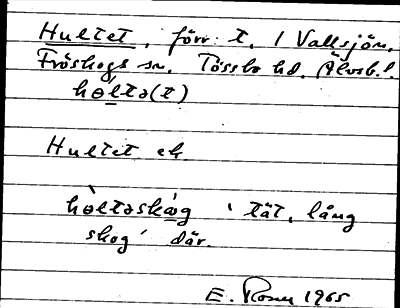 Hultet, förr: t. i Vallsjön,
Fröskogs sn. Tössbo hd. Älvsb.l.
hɵ̀ltə(t)
Hultet ek
hɵ̀ltəskåg 'tät, lång
skog' där.
E. 1965